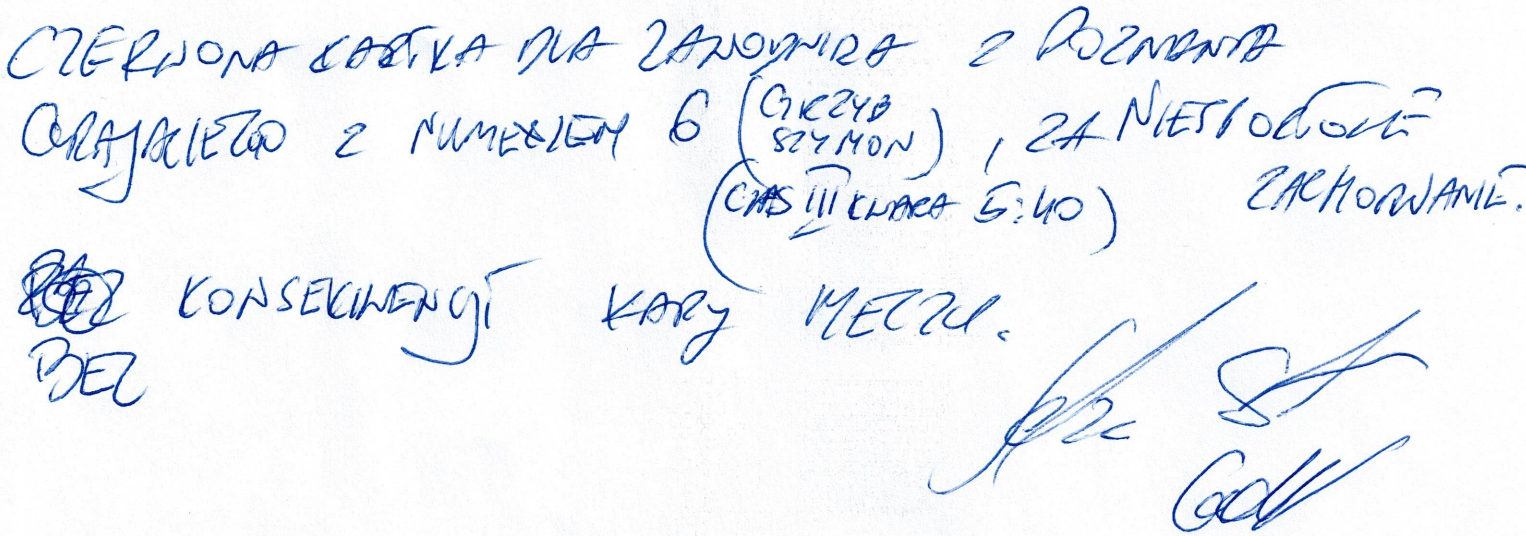 CZERWONA KARTKA DLA ZAWODNIKA Z POZNANIA
GRAJĄCEGO Z NUMEREM 6 (GRZYB SZYMON), ZA NIESPORTOWE
(CZAS III KWARTA 5:40) ZACHOWANIE.
KONSEKWENCJI KARY MECZU.
BEZ